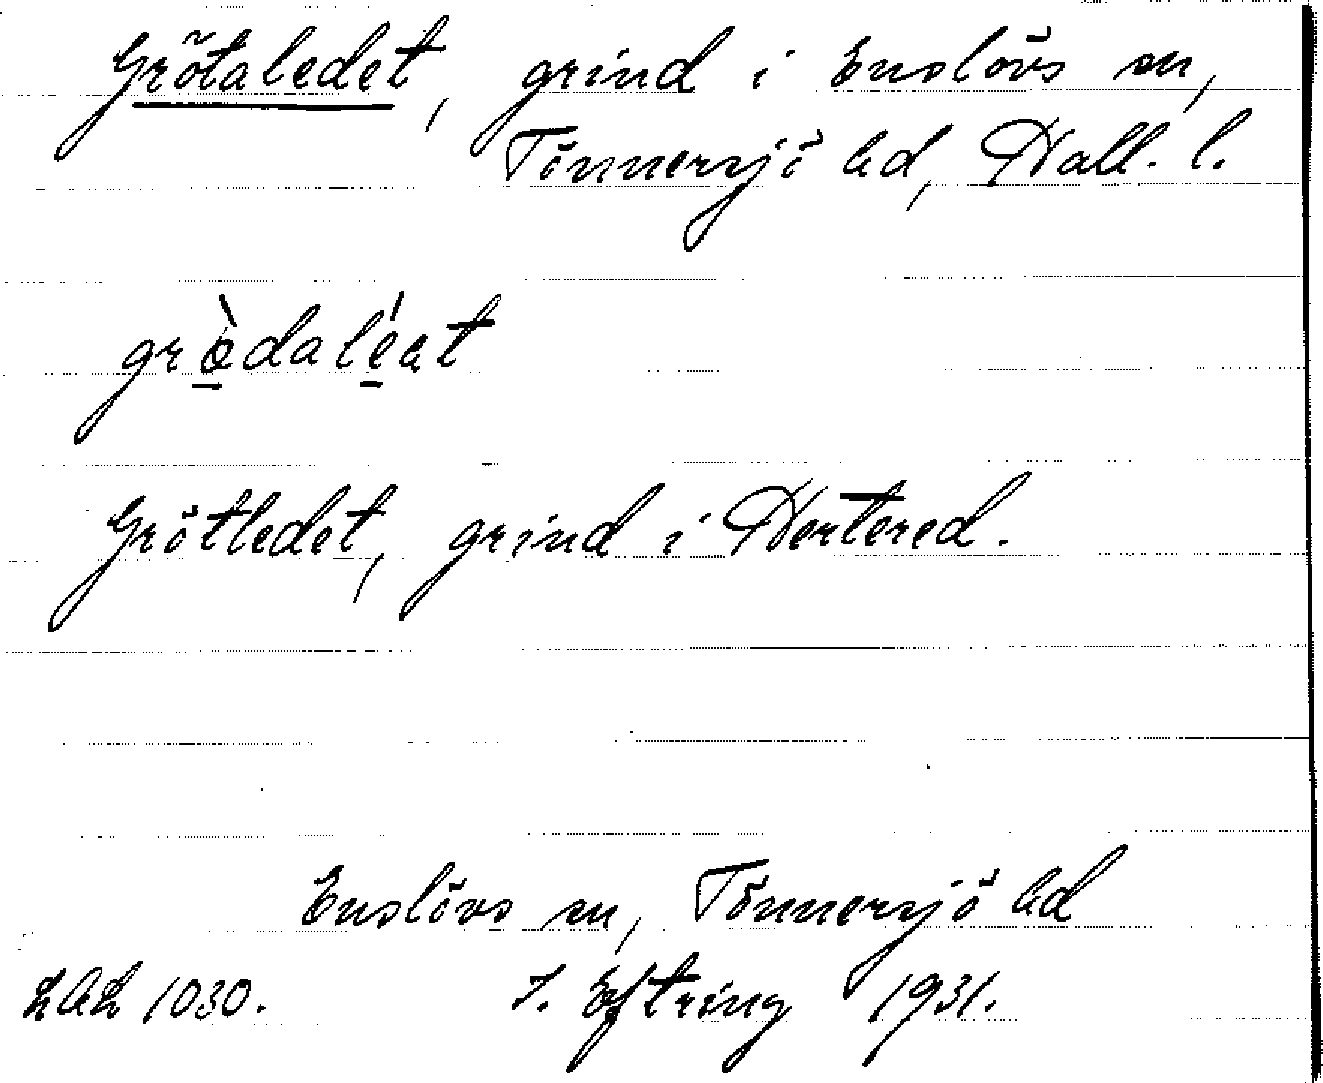 Grötaledet, grind i Enslövs sn,
Tönnersjö hd, Hall. l.
grø̀daléat
Grötledet, grind i Hertered.
Enslövs sn, Tönnersjö hd
LAL 1030. J. Eftring 1931.